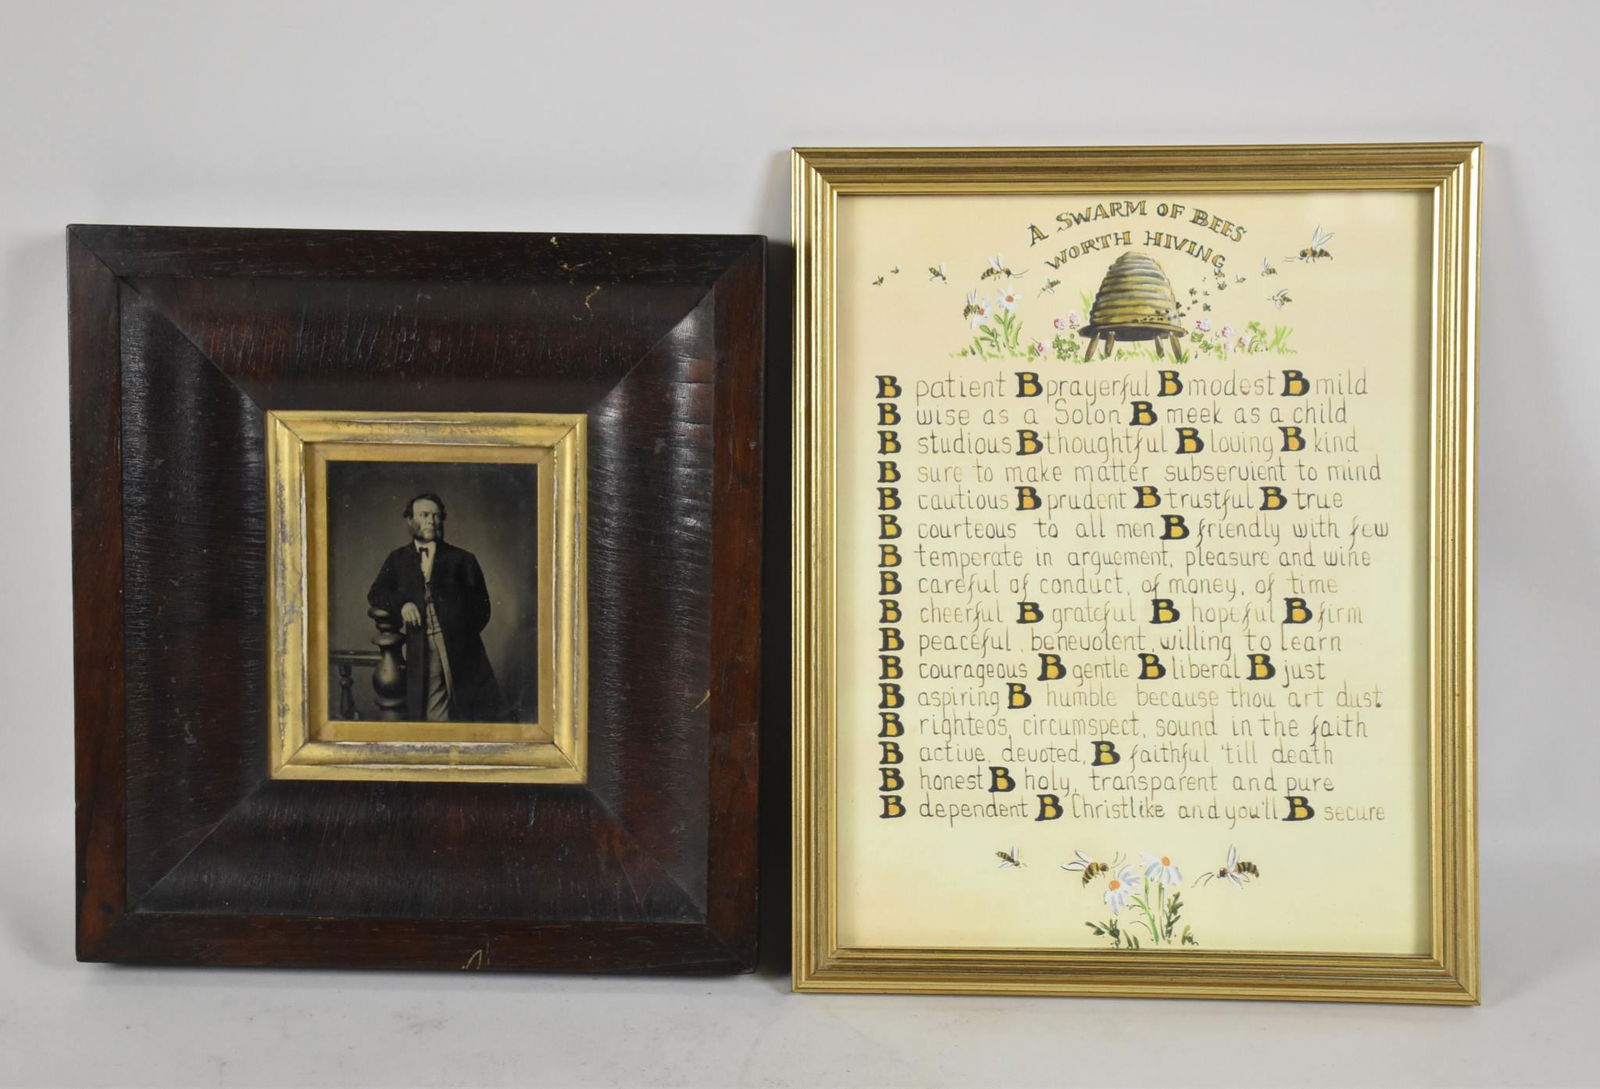 A SWARM OF BEES
WORTH HIVING
B patient B prayerful B modest B mild
B wise as a Solon B meek as a child
B studious B thoughtful B loving B kind
B sure to make matter subservient to mind
B cautious B prudent B trustful B true
B courteous to all men B friendly with few
B temperate in arguement, pleasure and wine
B careful of conduct, of money, of time
B cheerful B grateful B hopeful B firm
B peaceful, benevolent, willing to learn
B courageous B gentle B liberal B just
B aspiring B humble because thou art dust
B righteos, circumspect, sound in the faith
B active, devoted, B faithful 'till death
B honest B holy, transparent and pure
B dependent B Christlike and you'll B secure